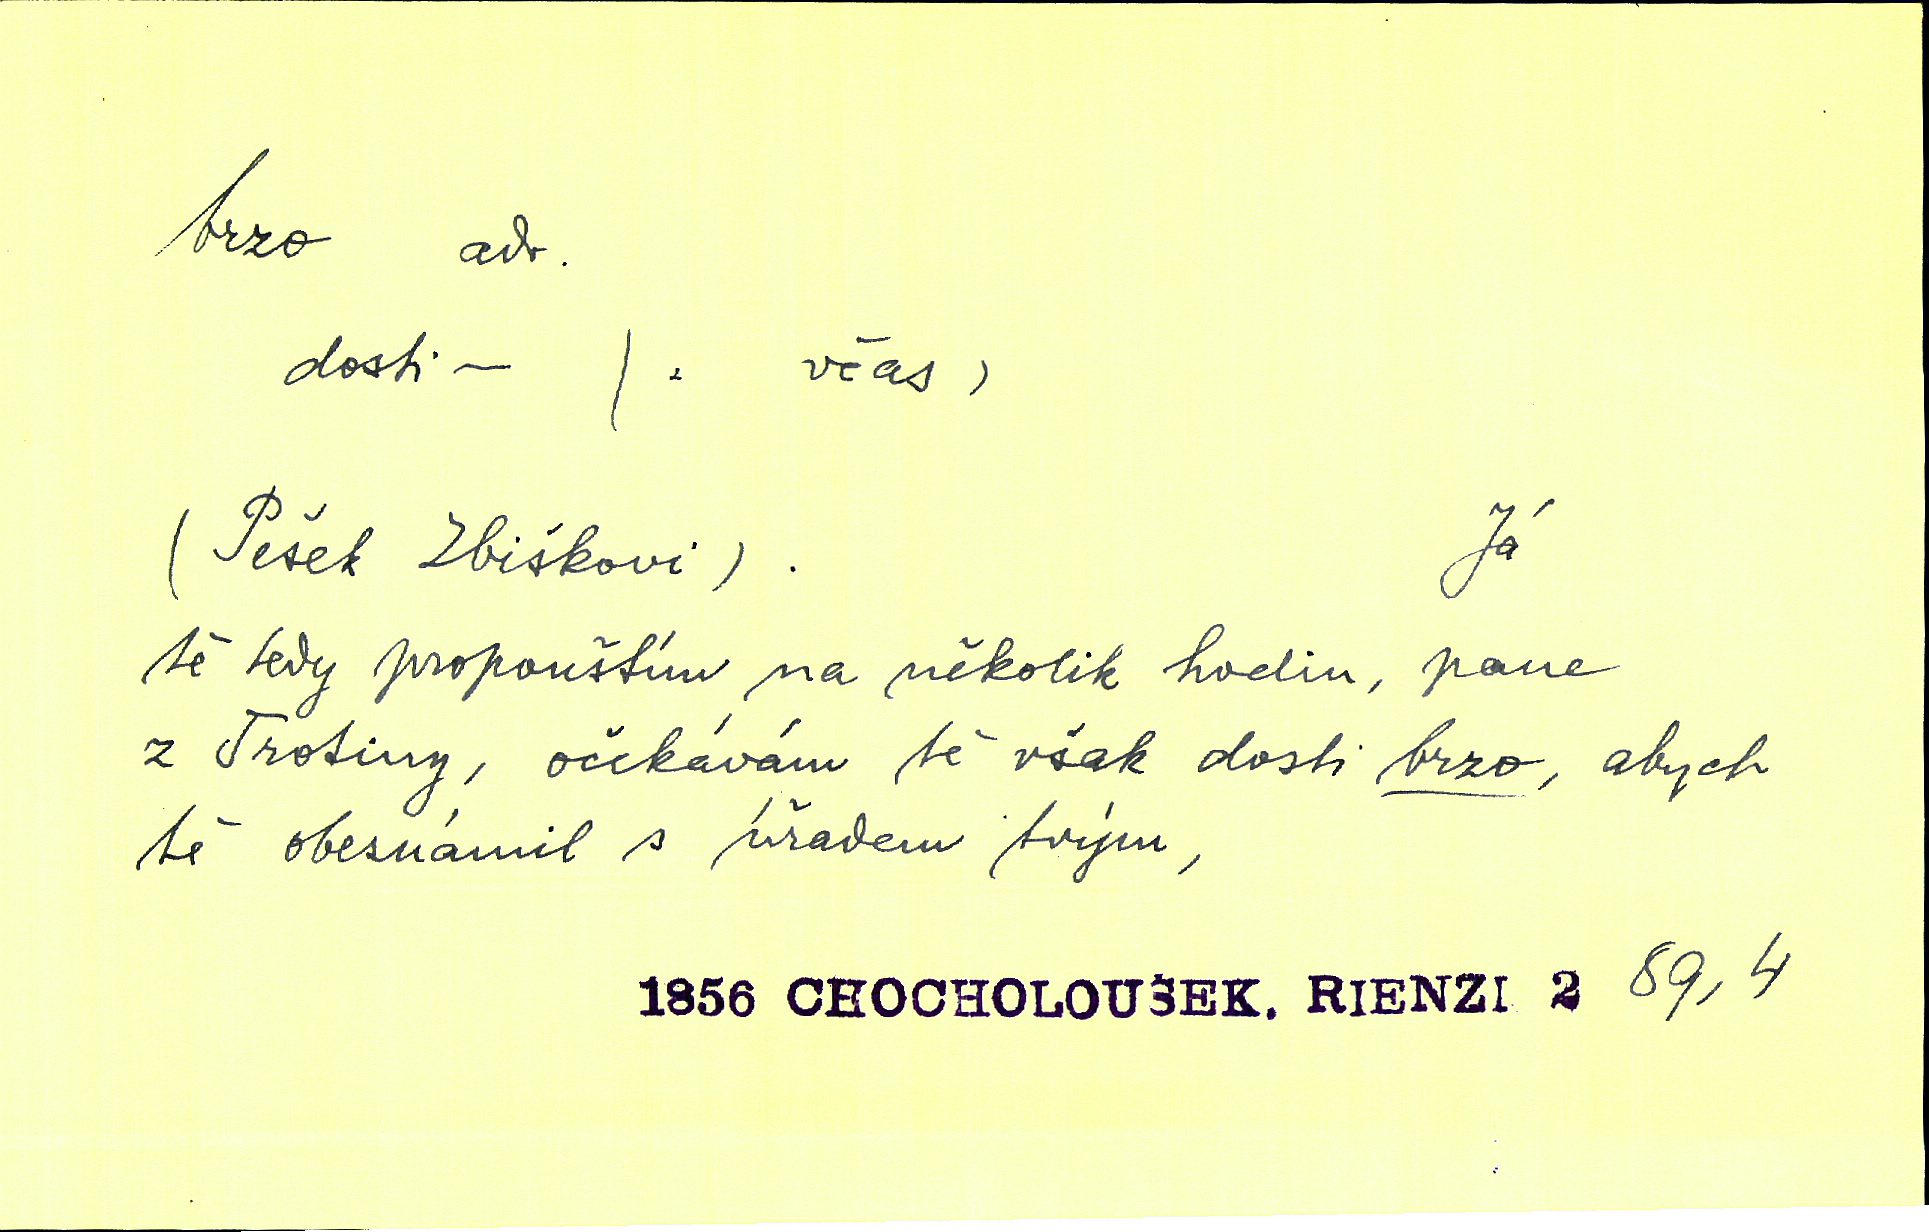 brzo adv.
dosti ~ (: včas)
(Pešek Zbiškovi). Já
tě tedy propouštím na několik hodin, pane
z Trotiny, očekávám tě však dosti brzo, abych
tě obeznámil s úřadem tvým,
1856 CHOCHOLOUŠEK. RIENZI 2 89,4